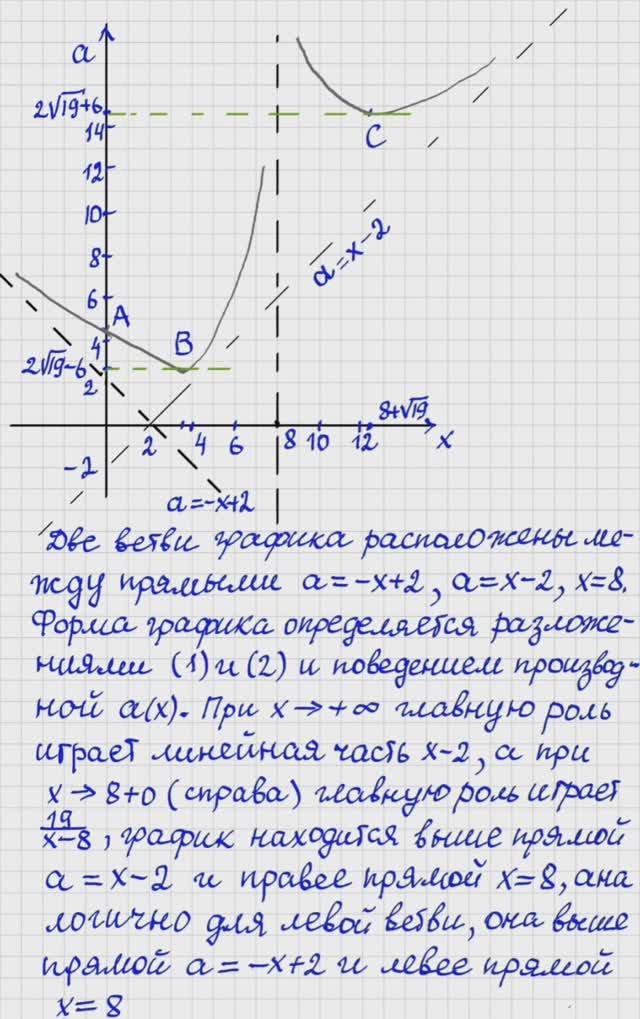 a
2√19+6
14
12
10
8
6
4
2√19-6
2
-2
A
B
C
a=x-2
2
4
6
8
10
12
8+√19
x
a=-x+2
Две ветви графика расположены ме-
жду прямыми a=-x+2, a=x-2, x=8.
Форма графика определяется разложе-
ниями (1) и (2) и поведением производ-
ной a(x). При x→+∞ главную роль
играет линейная часть x-2, а при
x→8+0 (справа) главную роль играет
19/(x-8), график находится выше прямой
a=x-2 и правее прямой x=8, ана
логично для левой ветви, она выше
прямой a=-x+2 и левее прямой
x=8